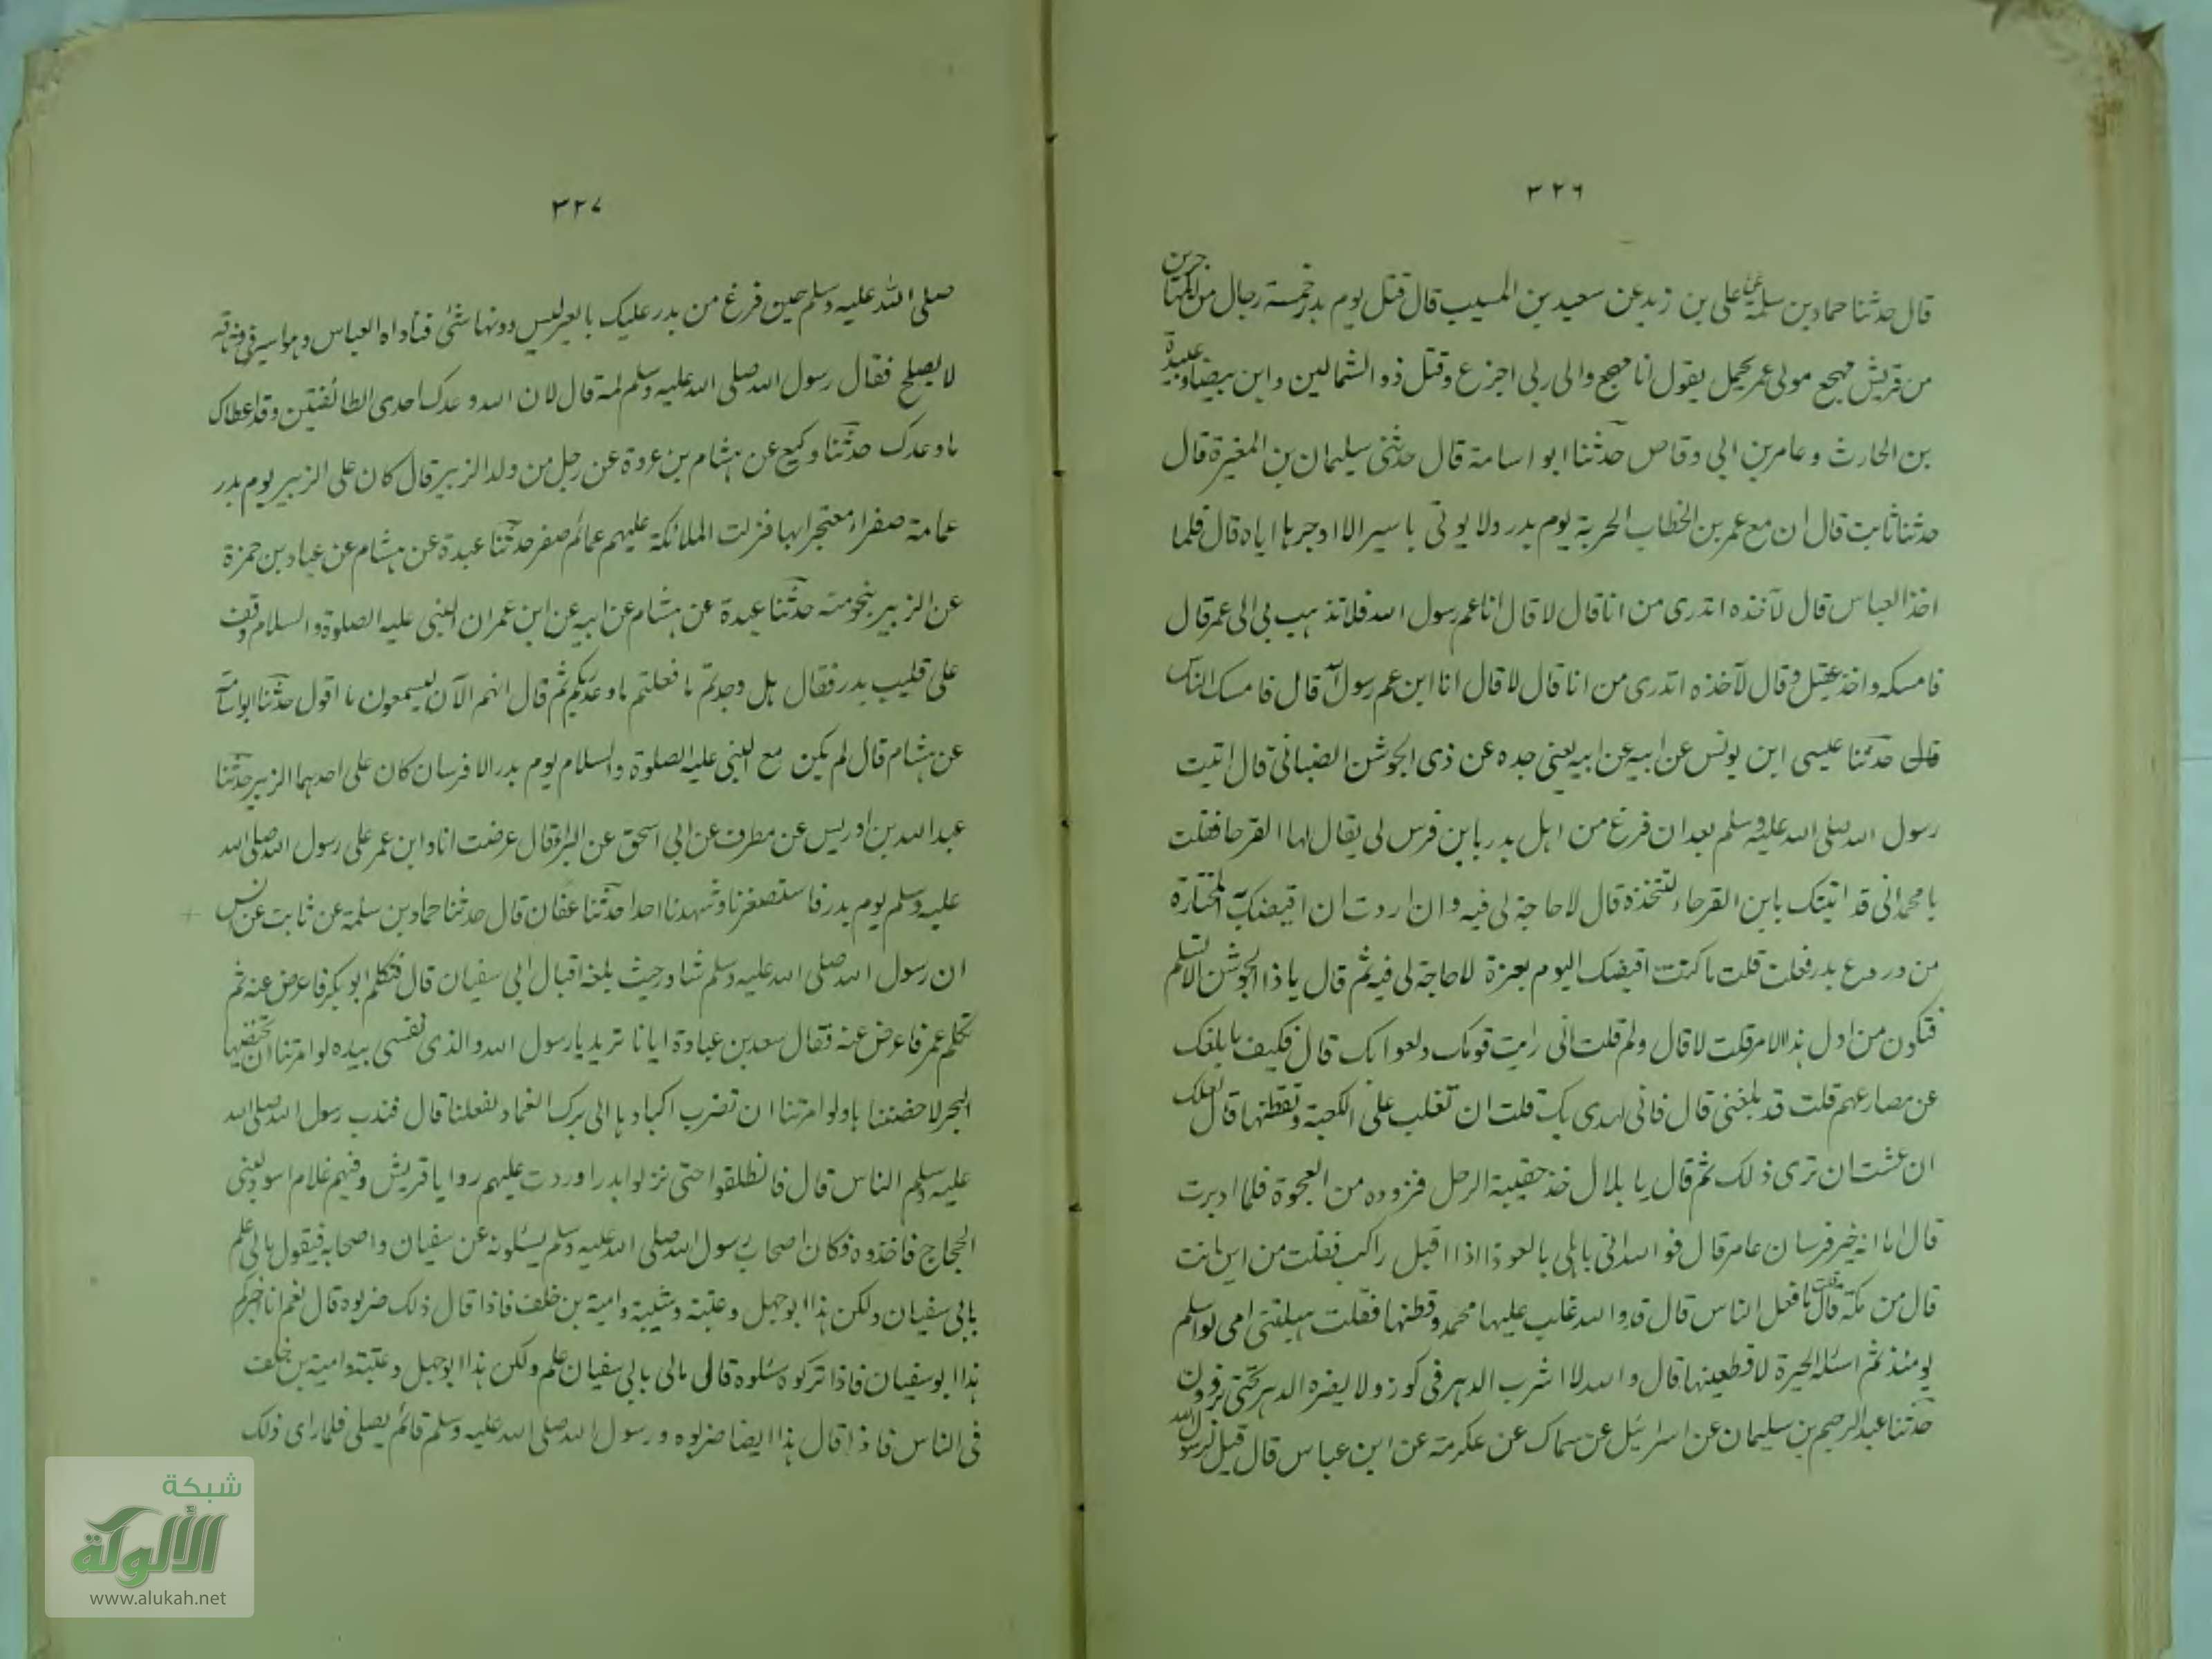 ٣٢٦
قال حدثنا حماد بن سلمة عن على بن زيد عن سعيد بن المسيب قال قتل يوم بدر خمسة رجال من المهاجرين
من قريش مهجع مولى عمر يحمل يقول انا مهجع والى ربى اجزع وقتل ذو الشمالين وابن بيضاء وعبيدة
بن الحارث وعامر بن ابى وقاص حدثنا ابو اسامة قال حدثنى سليمان بن المغيرة قال
حدثنا ثابت قال ان مع عمر بن الخطاب الحربة يوم بدر ولا يوتى باسير الا اوجرها اياه قال فلما
اخذ العباس قال لآخذه اتدرى من انا قال لا قال انا عم رسول الله فلا تذهب بى الى عمر قال
فامسكه واخذ عقيل وقال لآخذه اتدرى من انا قال لا قال انا ابن عم رسول الله قال فامسك الناس
قال حدثنا عيسى ابن يونس عن ابيه عن ابيه يعنى جده عن ذى الجوشن الضبابى قال اتيت
رسول الله صلى الله عليه وسلم بعد ان فرغ من اهل بدر بابن فرس لى يقال لها القرحا فقلت
يا محمد انى قد اتيتك بابن القرحاء لتتخذه قال لا حاجة لى فيه وان اردت ان اقيضك به المختارة
من دروع بدر فعلت قلت ما كنت اقيضك اليوم بعزة لا حاجة لى فيه ثم قال يا ذا الجوشن الا تسلم
فتكون من اول هذا الامر قلت لا قال ولم قلت انى رايت قومك ولعوا بك قال فكيف ما بلغك
عن مصارعهم قلت قد بلغنى قال فانى يهدى بك قلت ان تغلب على الكعبة وتقطنها قال لعلك
ان عشت ان ترى ذلك ثم قال يا بلال خذ حقيبة الرحل فزوده من العجوة فلما ادبرت
قال اما انه خير فرسان عامر قال فوالله انى باهلى بالعوذ اذا اقبل راكب فقلت من اين انت
قال من مكة قال قلت ما فعل الناس قال قد والله غلب عليها محمد وقطنها فقلت هبلتنى امى لو اسلم
يومئذ ثم اسئله الحيرة لاقطعينها قال والله لا اشرب الدهر فى كوز ولا يضره الدهر حتى
حدثنا عبد الرحيم بن سليمان عن اسرائيل عن سماك عن عكرمة عن ابن عباس قال قيل لرسول الله
٣٢٧
صلى الله عليه وسلم حين فرغ من بدر عليك بالعير ليس دونها شئ فناداه العباس وهو اسير فى وثاقه
لا يصلح فقال رسول الله صلى الله عليه وسلم لمه قال لان الله وعدك احدى الطائفتين وقد اعطاك
ما وعدك حدثنا وكيع عن هشام بن عروة عن رجل من ولد الزبير قال كان على الزبير يوم بدر
عمامة صفراء معتجرا بها فنزلت الملائكة عليهم عمائم صفر حدثنا عبدة عن هشام عن عباد بن حمزة
عن الزبير بنحو منه حدثنا عبدة عن هشام عن ابيه عن ابن عمر ان النبى عليه الصلوة والسلام وقف
على قليب بدر فقال هل وجدتم ما فعلتم ما وعد ربكم ثم قال انهم الآن ليسمعون ما اقول حدثنا ابو اسامة
عن هشام قال لم يكن مع النبى عليه الصلوة والسلام يوم بدر الا فرسان كان على احدهما الزبير حدثنا
عبد الله بن ادريس عن مطرف عن ابى اسحق عن البراء قال عرضت انا وابن عمر على رسول الله صلى الله
عليه وسلم يوم بدر فاستصغرنا وشهدنا احدا حدثنا عفان قال حدثنا حماد بن سلمة عن ثابت عن انس
ان رسول الله صلى الله عليه وسلم شاور حيث بلغه اقبال ابى سفيان قال فتكلم ابو بكر فاعرض عنه ثم
تكلم عمر فاعرض عنه فقال سعد بن عبادة ايانا تريد يا رسول الله والذى نفسى بيده لو امرتنا ان نخيضها
البحر لاخضناها ولو امرتنا ان نضرب اكبادها الى برك الغماد لفعلنا قال فندب رسول الله صلى الله
عليه وسلم الناس قال فانطلقوا حتى نزلوا بدرا وردت عليهم روايا قريش وفيهم غلام اسود لبنى
الحجاج فاخذوه فكان اصحاب رسول الله صلى الله عليه وسلم يسئلونه عن سفيان واصحابه فيقول مالى علم
بابى سفيان ولكن هذا ابو جهل وعتبة وشيبة وامية بن خلف فاذا قال ذلك ضربوه قال نعم انا اخبركم
هذا ابو سفيان فاذا تركوه سئلوه قال مالى بابى سفيان علم ولكن هذا ابو جهل وعتبة وامية بن خلف
فى الناس فاذا قال هذا ايضا ضربوه ورسول الله صلى الله عليه وسلم قائم يصلى فلما راى ذلك
شبكة
الألوكة
www.alukah.net